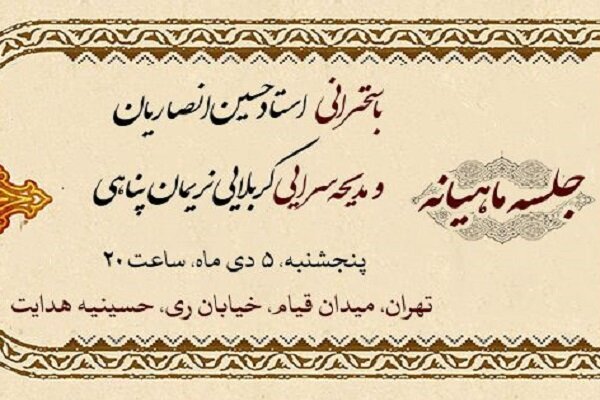 جلسه ماهیانه
با سخنرانی استاد حسین انصاریان
و مدیحه سرایی کربلایی نریمان پناهی
پنجشنبه، ۵ دی ماه، ساعت ۲۰
تهران، میدان قیام، خیابان ری، حسینیه هدایت